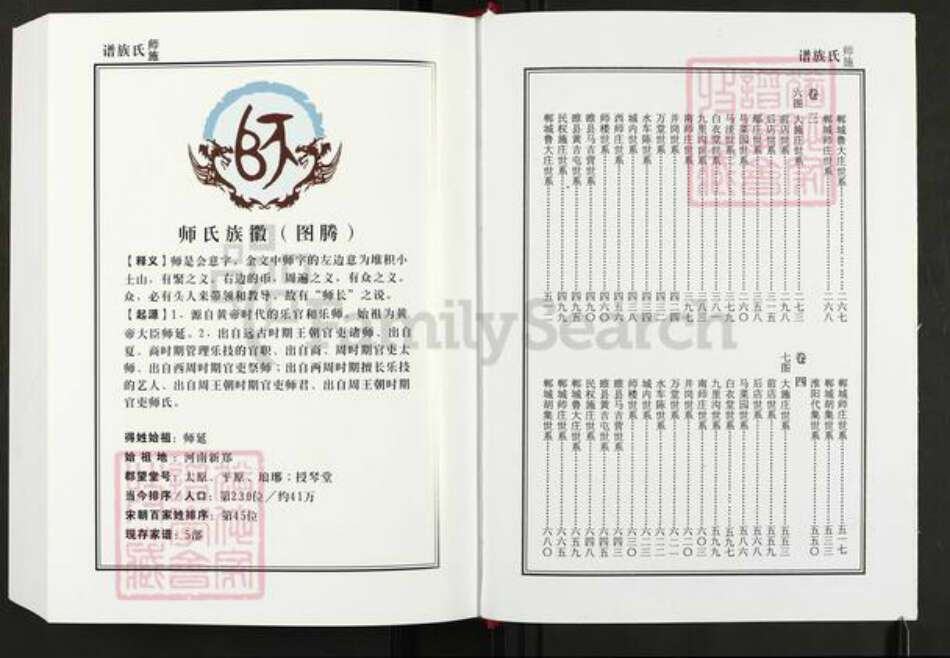 谱族氏师施
师
师氏族徽（图腾）
【释义】师是会意字，金文中师字的左边意为堆积小
土山，有聚之义，右边的币，周遍之义，有众之义。
众，必有头人来带领和教导，故有“师长”之说。
【起源】1、源自黄帝时代的乐官和乐师，始祖为黄
帝大臣师延。2、出自远古时期王朝官吏诸师、出自
夏、商时期管理乐技的官职、出自商、周时期官吏太
师、出自西周时期官吏
师、出自西周时期擅长乐技
的艺人、出自周王朝时期官吏师君、出自周王朝时期
官吏师氏。
得姓始祖：师延
始祖地：河南新郑
郡望堂号：太原、平原、琅琊；授琴堂
当今排序／人口：第230位／约41万
宋朝百家姓排序：第45位
现存家谱：5部
FamilySearch
谱族氏师施
郸城鲁大庄世系 二六七
郸城师庄世系 二六八
卷三
六图
大施庄世系 二七三
前店世系 二九八
后店世系 三一五
马菜园世系
白衣堂世系
九里沟世系
南师庄世系
井岗世系
万堂世系
水车陈世系
城内世系
师楼世系
西师庄世系
睢县马吉营世系
睢县黄吉屯世系
民权施庄世系
郸城鲁大庄世系
郸城师庄世系 五一七
郸城胡集世系 五三三
淮阳代集世系 五五〇
卷四
七图
大施庄世系 五五三
前店世系 五五九
后店世系 五六八
马菜园世系 五八六
白衣堂世系 五九七
九里沟世系 五九九
南师庄世系 六〇三
井岗世系 六一〇
万堂世系 六一一
水车陈世系 六一二
城内世系 六三〇
师楼世系 六三八
睢县马吉营世系 六四三
睢县黄吉屯世系 六四五
民权施庄世系 六四八
郸城鲁大庄世系 六五九
郸城师庄世系 六六五
郸城胡集世系 六八〇